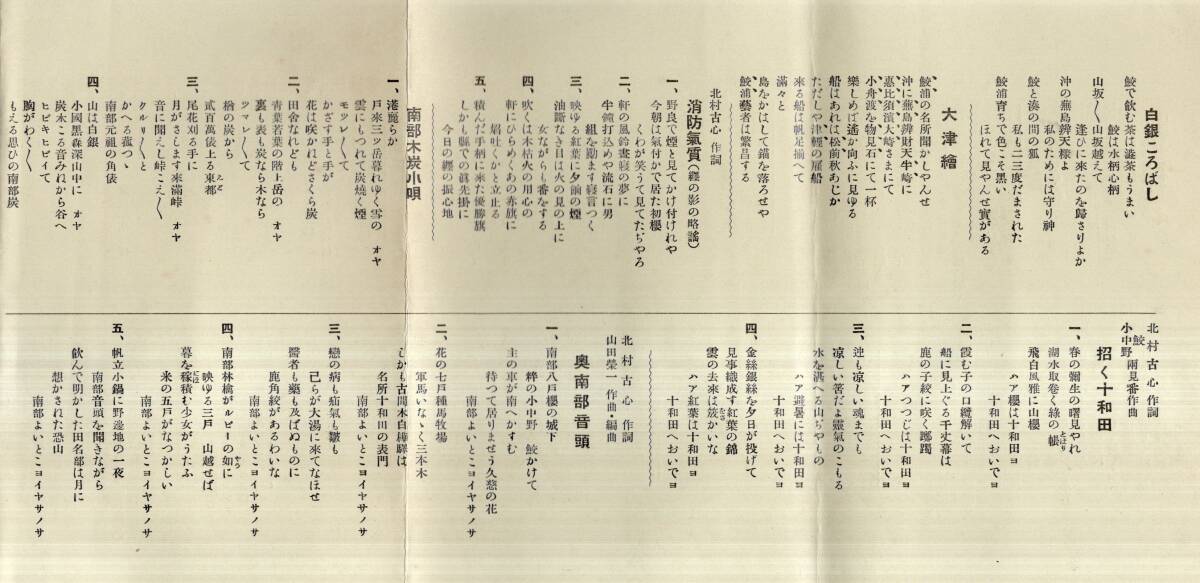 白銀ころばし
鮫で飮む茶は澁茶もうまい
鮫は水柄心柄
山坂〱山坂越えて
逢ひに來たのを歸さりよか
沖の蕪島辨天樣よ
私のためには守り神
鮫と湊の間の狐
私も二三度だまされた
鮫浦育ちで色こそ黑い
ほれて見やんせ實がある
大津繪
鮫浦の名所聞かしやんせ
沖に蕪島辨財天牛﨑に
惠比須濱大﨑さまにて
小舟渡を物見石にて一杯
樂しめば遙か向ふに見ゆる
船はあれは松前秋あじか
ただしや津輕の雇船
來る船は帆足揃へて
滿々と
島をかはして錨を落ろせや
鮫浦藝者は繁昌する
北村古心 作詞
消防氣質(纏の影の略謠)
一、野良で煙と見てかけ付けれや
今朝は氣付かで居た初櫻
くわが笑うて見てたぢやろ
二、軒の風鈴晝寢の夢に
半鐘打込めや流石に男
組を勵ます寢言つく
三、映ゆる紅葉に夕餉の煙
油斷なき目は火の見の上に
女ながらも番をする
四、吹くは木枯火の用心の
軒にひらめくあの赤旗に
眉吐くかと立止る
五、積んだ手柄に來た優勝旗
しかも縣での眞先掛に
今日の纏の振心地
南部木炭小唄
一、港麗らか
戶來三ッ岳暮れゆく雪の オヤ
雲にもつれて炭燒く煙
モツレ〱て
かざす手と手が
花は咲かねどさくら炭
二、田舍なれども
靑葉若葉の階上岳の オヤ
裏も表も炭なら木なら
ツマレ〱て
楢の炭から
貳百萬俵上る東都
三、尾花刈る手に
月がさします來滿峠 オヤ
音に聞えし峠こえ〱
クルリ〱と
かへる菰つゝ
南部元祖の角俵
四、山は白銀
小國黑森深山中に オヤ
炭木こる音みねから谷へ
ヒビキヒビイて
胸がわく〱
もえる思ひの南部炭
北村古心 作詞
鮫
小中野 兩見番作曲
招く十和田
一、春の彌生の曙見やれ
湖水取卷く綠の帳
飛白風雅に山櫻
ハア櫻は十和田ョ
十和田へおいでョ
二、霞む子の口纜解いて
船に見上ぐる千丈幕は
鹿の子絞に咲く躑躅
ハアつつじは十和田ョ
十和田へおいでョ
三、辿も凉しい魂までも
凉しい筈だよ靈氣のこもる
水を湛へる山ぢやもの
ハア避暑には十和田ョ
十和田へおいでョ
四、金絲銀絲を夕日が投げて
見事織成す紅葉の錦
雲の去來は筬かいな
ハア紅葉は十和田ョ
十和田へおいでョ
北村古心 作詞
山田榮一 作曲・編曲
奥南部音頭
一、南部八戶櫻の城下
粹の小中野 鮫かけて
主の車が南へかすむ
待つて居りませう久慈の花
南部よいとこヨイヤサノサ
二、花の七戶種馬牧場
軍馬いなゝく三本木
しかも古間木白樺驛は
名所十和田の表門
南部よいとこヨイヤサノサ
三、戀の病も疝氣も皺も
己らが大湯に來てなほせ
醫者も藥も及ばぬものに
鹿角絞があるわいな
南部よいとこヨイヤサノサ
四、南部林檎がルビーの如に
映ゆる三戶 山越せば
暮を稼積む少女がうたふ
米の五戶がなつかしい
南部よいとこヨイヤサノサ
五、帆立小鍋に野邊地の一夜
南部音頭を聞きながら
飮んで明かした田名部は月に
想かされた恐山
南部よいとこヨイヤサノサ